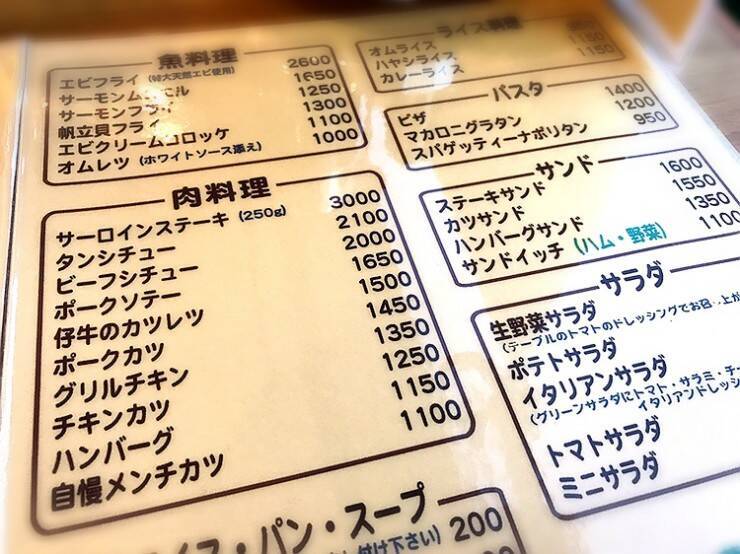 魚料理
エビフライ (特大天然エビ使用) 2600
サーモンム ル 1650
サーモンフライ 1250
帆立貝フライ 1300
エビクリームコロッケ 1100
オムレツ (ホワイトソース添え) 1000
肉料理
サーロインステーキ (250g) 3000
タンシチュー 2100
ビーフシチュー 2000
ポークソテー 1650
仔牛のカツレツ 1500
ポークカツ 1450
グリルチキン 1350
チキンカツ 1250
ハンバーグ 1150
自慢メンチカツ 1100
イス・パン・スープ
付け下さい) 200
ライス
オムライス
ハヤシライス 1150
カレーライス 1150
パスタ
ピザ 1400
マカロニグラタン 1200
スパゲッティーナポリタン 950
サンド
ステーキサンド 1600
カツサンド 1550
ハンバーグサンド 1350
サンドイッチ (ハム・野菜) 1100
サラダ
生野菜サラダ
(テーブルのトマトのドレッシングでお召 上が
ポテトサラダ
イタリアンサラダ
(グリーンサラダにトマト・サラミ・チー
イタリアンドレッシ
トマトサラダ
ミニサラダ